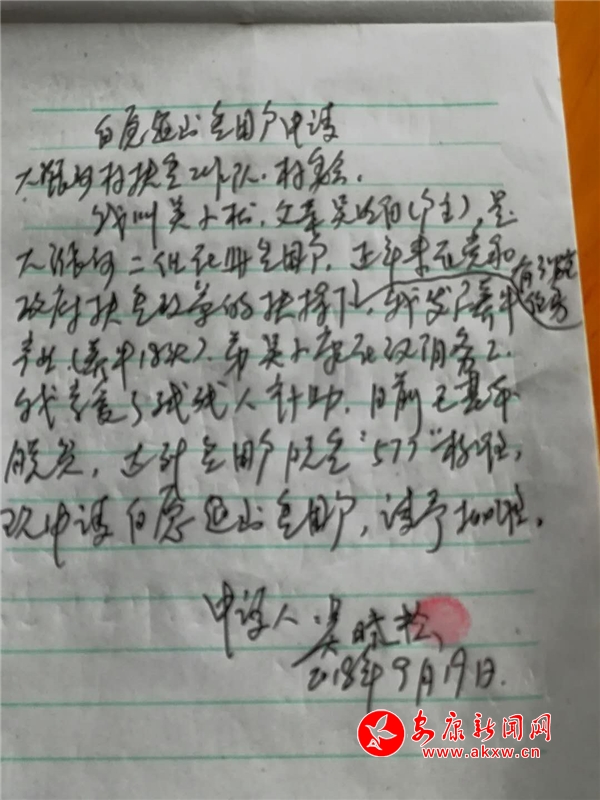 自愿退出贫困户申请
大涨河村扶贫工作队、村委会:
我叫吴小松,父亲吴　(户主),是
大涨河二组在册贫困户,近年来在党和
政府扶贫政策的扶持下,我发展养牛
有了
产业(养牛18头),弟吴小　在汉阴务工,
我享受了残疾人补助,目前已基本
脱贫,达到贫困户脱贫“577”标准,
现申请自愿退出贫困户,请予批准。
申请人:吴晓松
2018年9月19日.
安康新闻网
www.akxw.cn